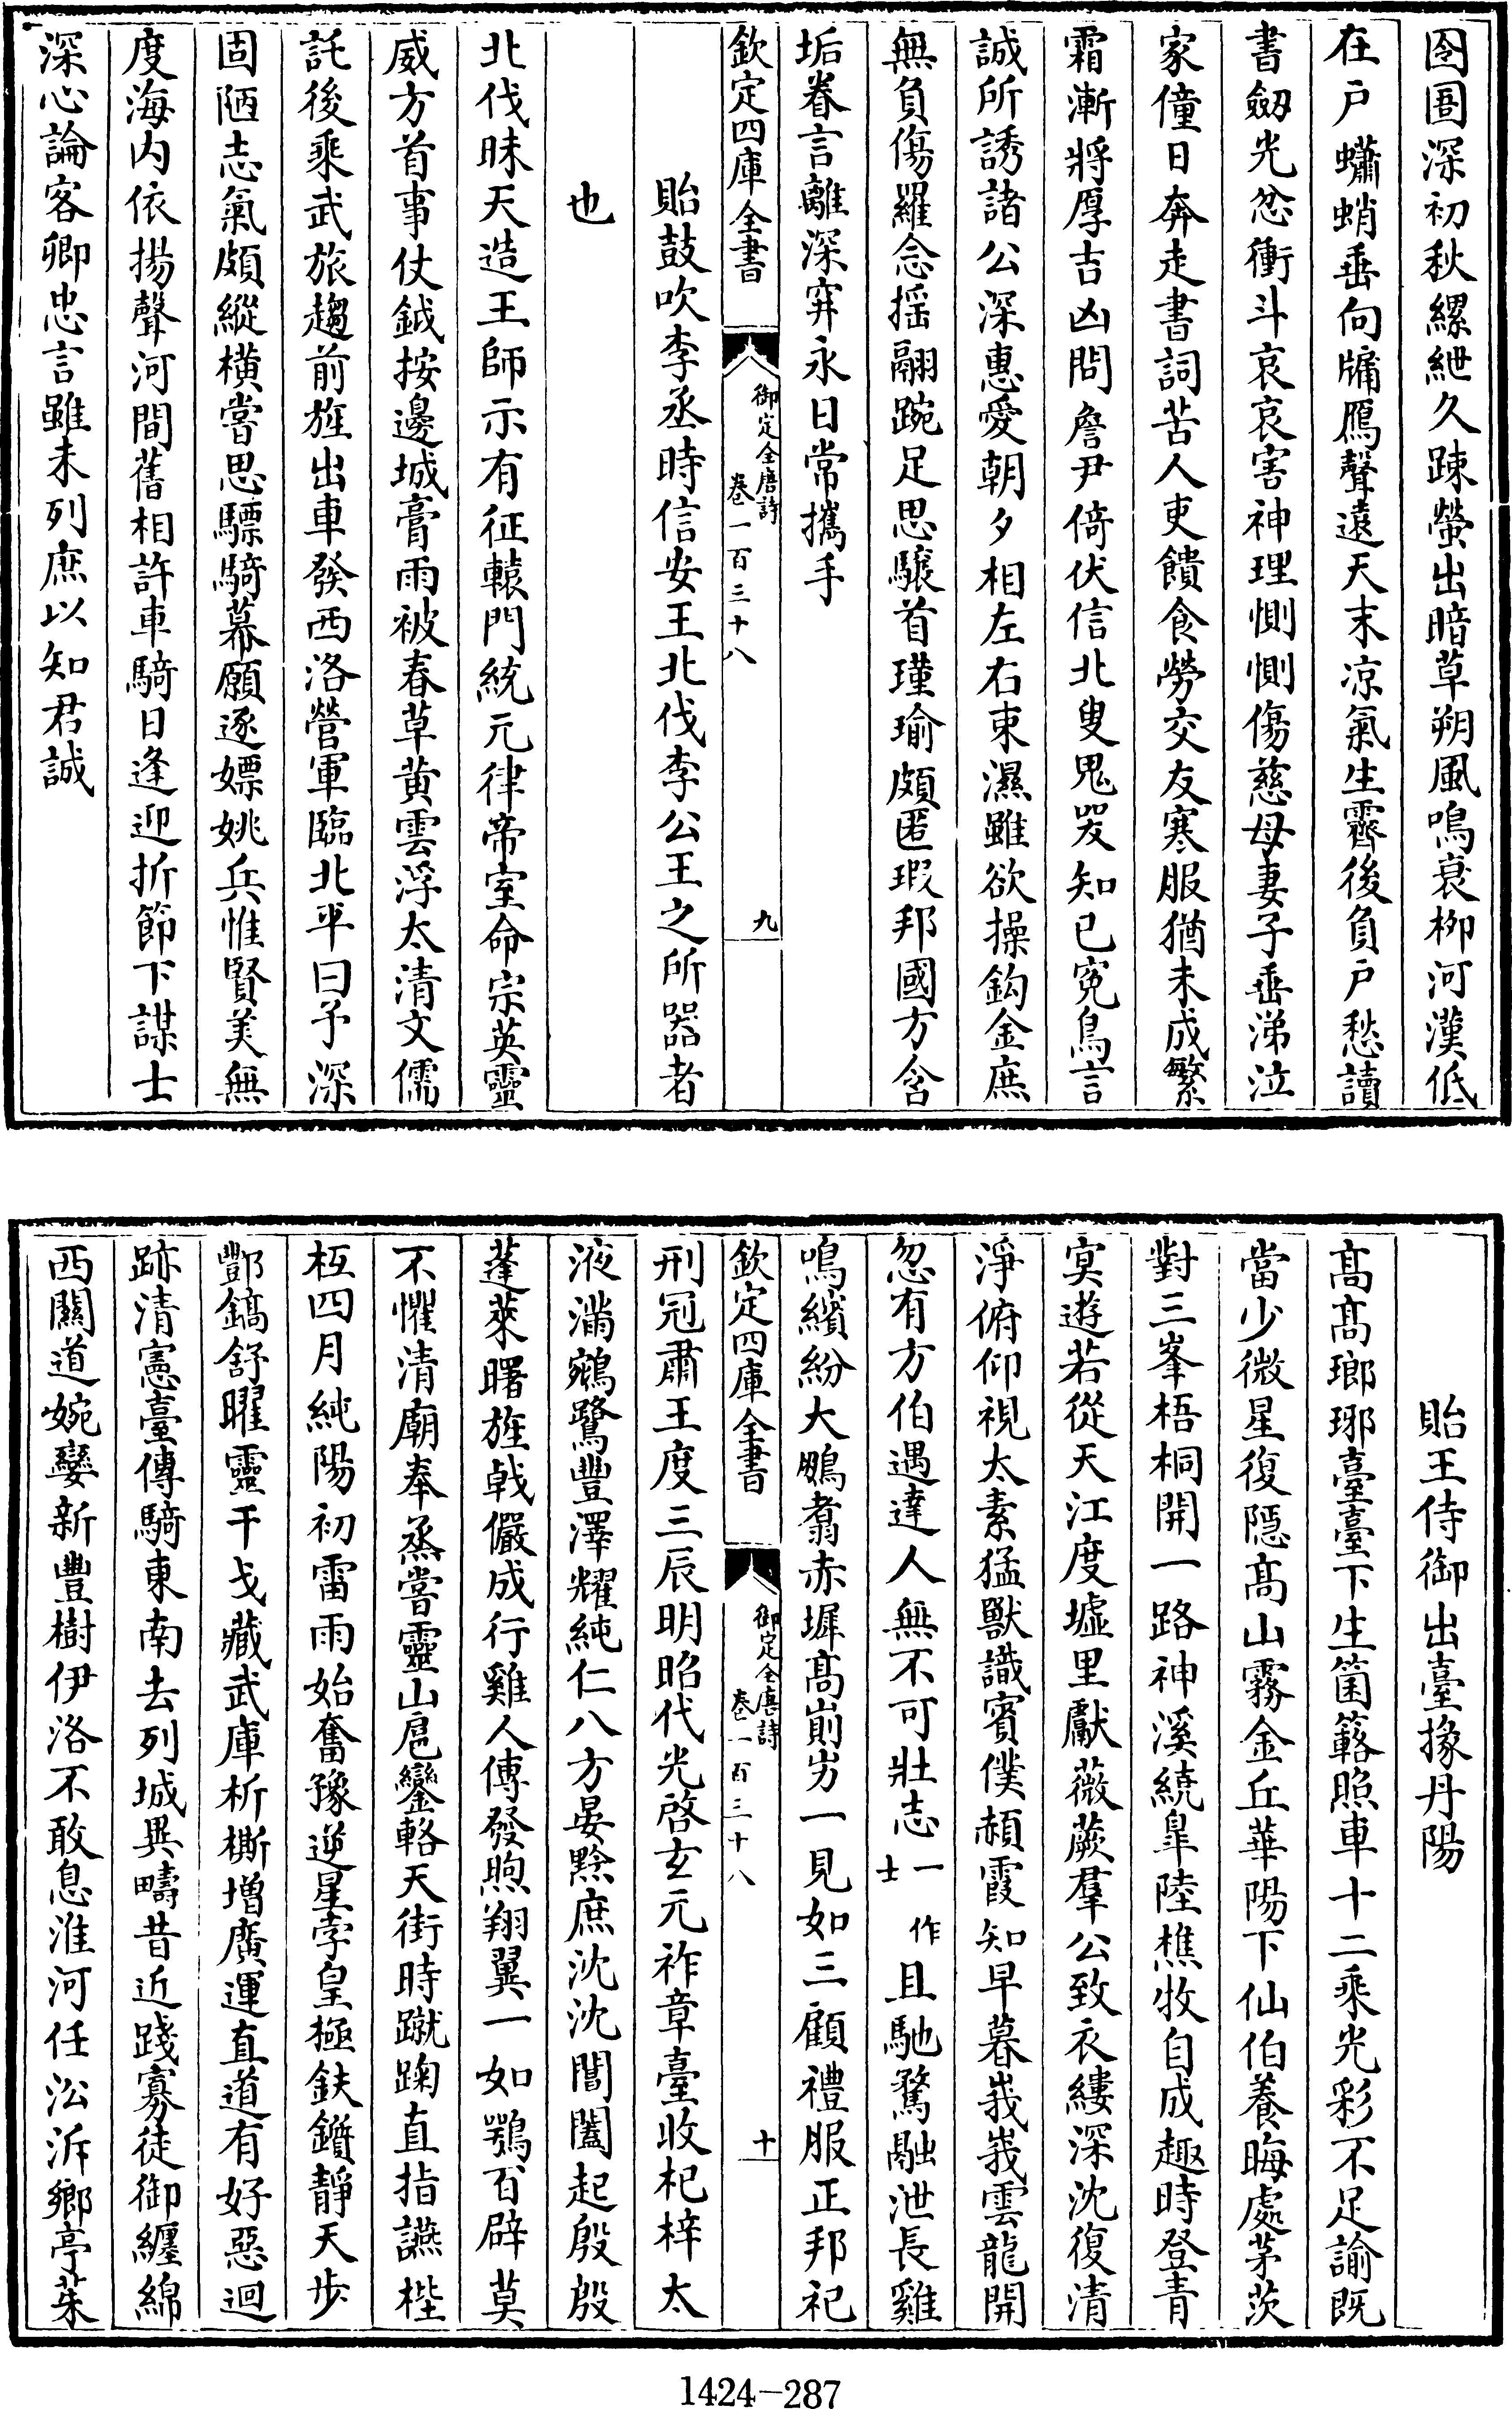 囹圄深初秋縲紲久踈螢出暗草朔風鳴衰栁河漢低
在戶蠨蛸垂向牖鴈聲遠天末涼氣生霽後負戶愁讀
書劒光忿衝斗哀哀害神理惻惻傷慈母妻子垂涕泣
家僮日奔走書詞苦人吏饋食勞交友寒服猶未成繁
霜漸將厚吉凶問詹尹倚伏信北叟鬼哭知已寃鳥言
誠所誘諸公深惠愛朝夕相左右束濕雖欲操鈎金庶
無負傷羅念搖翮踠足思驤首瑾瑜頗匿瑕邦國方含
垢眷言離深穽永日常攜手
欽定四庫全書
御定全唐詩
卷一百三十八
九
貽鼓吹李丞時信安王北伐李公王之所器者
也
北伐昧天造王師示有征轅門統元律帝室命宗英靈
威方首事仗鉞按邊城膏雨被春草黃雲浮太清文儒
託後乘武旅趨前旌出車發西洛營軍臨北平曰予深
固陋志氣頗縱橫嘗思驃騎幕願逐嫖姚兵惟賢美無
度海内依揚聲河間舊相許車騎日逢迎折節下謀士
深心論客卿忠言雖未列庶以知君誠
貽王侍御出臺掾丹陽
髙髙瑯琊臺臺下生箘簵照車十二乘光彩不足諭既
當少微星復隱髙山霧金丘華陽下仙伯養晦處茅茨
對三峯梧桐開一路神溪繞臯陸樵牧自成趣時登青
㝠遊若從天江度墟里獻薇蕨羣公致衣縷深沈復清
淨俯仰視太素猛獸識賓僕赬霞知早暮峩峩雲龍開
忽有方伯遇達人無不可壯志一作士且馳騖融泄長雞
鳴繽紛大鵬翥赤墀髙崱屴一見如三顧禮服正邦祀
欽定四庫全書
御定全唐詩
卷一百三十八
十
刑冠肅王度三辰明昭代光啓玄元祚章臺收杞梓太
液滿鵷鷺豐澤耀純仁八方晏黔庶沈沈閶闔起殷殷
蓬萊曙旌㦸儼成行雞人傳發煦翔翼一如鶚百辟莫
不懼清廟奉烝嘗靈山扈鑾輅天街時蹴踘直指讌梐
枑四月純陽初雷雨始奮豫逆星孛皇極鈇鑕靜天步
酆鎬舒曜靈干戈藏武庫析槱増廣運直道有好惡迴
跡清憲臺傳騎東南去列城異疇昔近踐寡徒御纏綿
西關道婉孌新豐樹伊洛不敢息淮河任沿泝鄉亭茱
1424-287